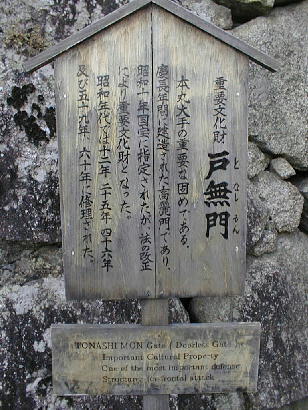 重要文化財
戸無門
と なし もん
本丸大手の重要な固めである。
慶長年間に建造された高麗門であり、
昭和十年国宝に指定されたが、法の改正
により重要文化財となった。
昭和年代では十二年、二十五年、四十六年
及び五十九年、六十年に修理された。
TONASHI MON Gate (Doorless Gate)
Important Cultural Property
One of the most important defense
Structures for frontal attack